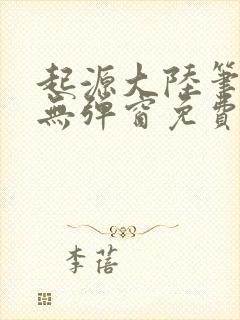 起源大陸筆
無彈窗免費
李蓓